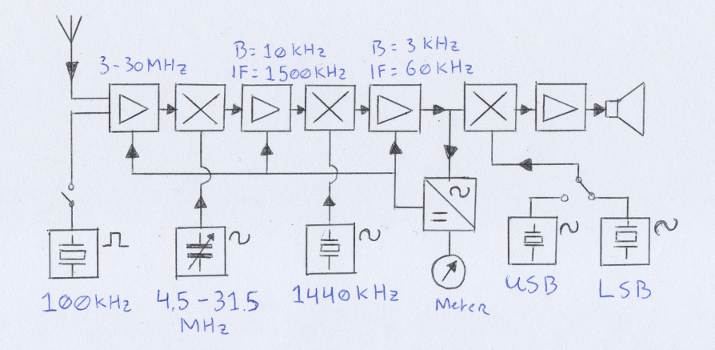 3-30MHz
B= 10kHz
IF= 1500kHz
B= 3 kHz
IF= 60kHz
100kHz
4,5-31,5
MHz
1440kHz
Meter
USB
LSB